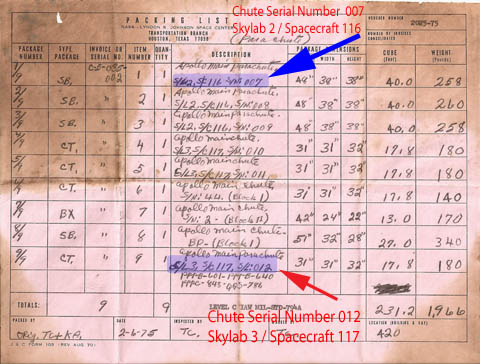 Chute Serial Number 007
Skylab 2 / Spacecraft 116
PACKING LIST
NASA-LYNDON B. JOHNSON SPACE CENTER
TRANSPORTATION BRANCH
HOUSTON, TEXAS 77058
(Parachute)
VOUCHER NUMBER
2025-75
NUMBER OF INVOICES CONSOLIDATED
PACKAGE NUMBER TYPE PACKAGE INVOICE OR SERIAL NO. ITEM NUMBER QUANTITY DESCRIPTION PACKAGE DIMENSIONS CUBE (Feet) WEIGHT (Pounds)
WIDTH HEIGHT
002
Apollo Main Parachute
1/9 SB. 1 1 S/L2, S/C 116, S/N: 007 48" 38" 38" 40.0 258
Apollo Main Parachute
2/9 SB. 2 1 S/L2, S/C 116, S/N: 008 48" 38" 38" 40.0 260
Apollo Main Parachute
3/9 SB. 3 1 S/L2, S/C 116, S/N: 009 48" 38" 38" 40.0 258
Apollo Main chute
4/9 CT. 4 1 S/L3, S/C 117, S/N: 010 31" 31" 32" 17.8 180
Apollo Main chute
5/9 CT. 5 1 S/L3, S/C 117, S/N: 011 31" 31" 32" 17.8 180
Apollo Main chute
6/9 CT. 6 1 S/N: 44 (Block 1) 31" 31" 32" 17.8 140
Apollo Main chute
7/9 BX 7 1 S/N: 2- (Block II) 42" 24" 22" 13.0 170
Apollo Main Chute
8/9 SB. 8 1 BP- (Block 1) 51" 32" 28" 27.0 340
Apollo Main Parachute
9/9 CT. 9 1 S/L3, S/C 117, S/N: 012 31" 31" 32" 17.8 180
TOTALS: 9 9 LEVEL C IAW MIL-STD-794A 231.2 1,966
Chute Serial Number 012
Skylab 3 / Spacecraft 117
PACKED BY DATE INSPECTED BY LOCATION (BUILDING & BAY)
2-6-75 TC. 420
JSC FORM 103 (REV AUG 70)